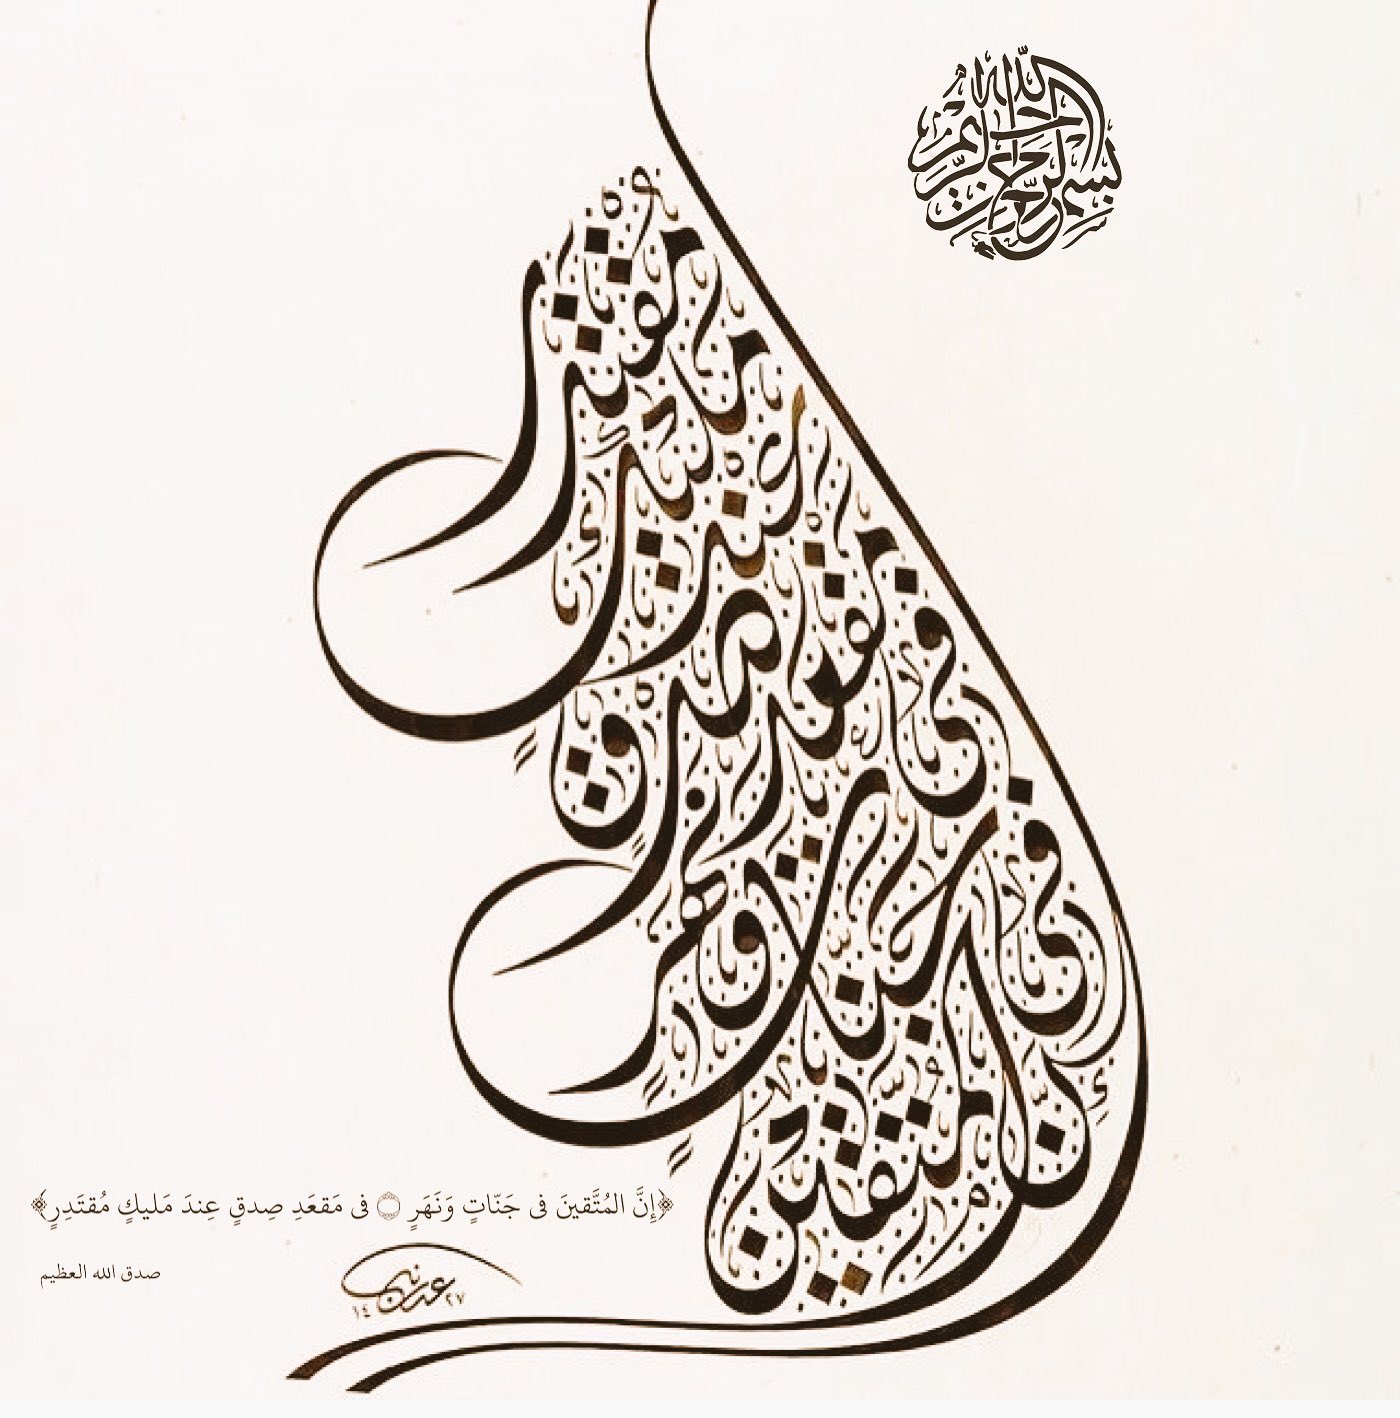 بسم الله الرحمن الرحيم
إن المتقين في جنات ونهر في مقعد صدق عند مليك مقتدر
﴿إِنَّ المُتَّقينَ فى جَنّاتٍ وَنَهَرٍ ۝ فى مَقعَدِ صِدقٍ عِندَ مَليكٍ مُقتَدِرٍ﴾
صدق الله العظيم
١٤٢٧